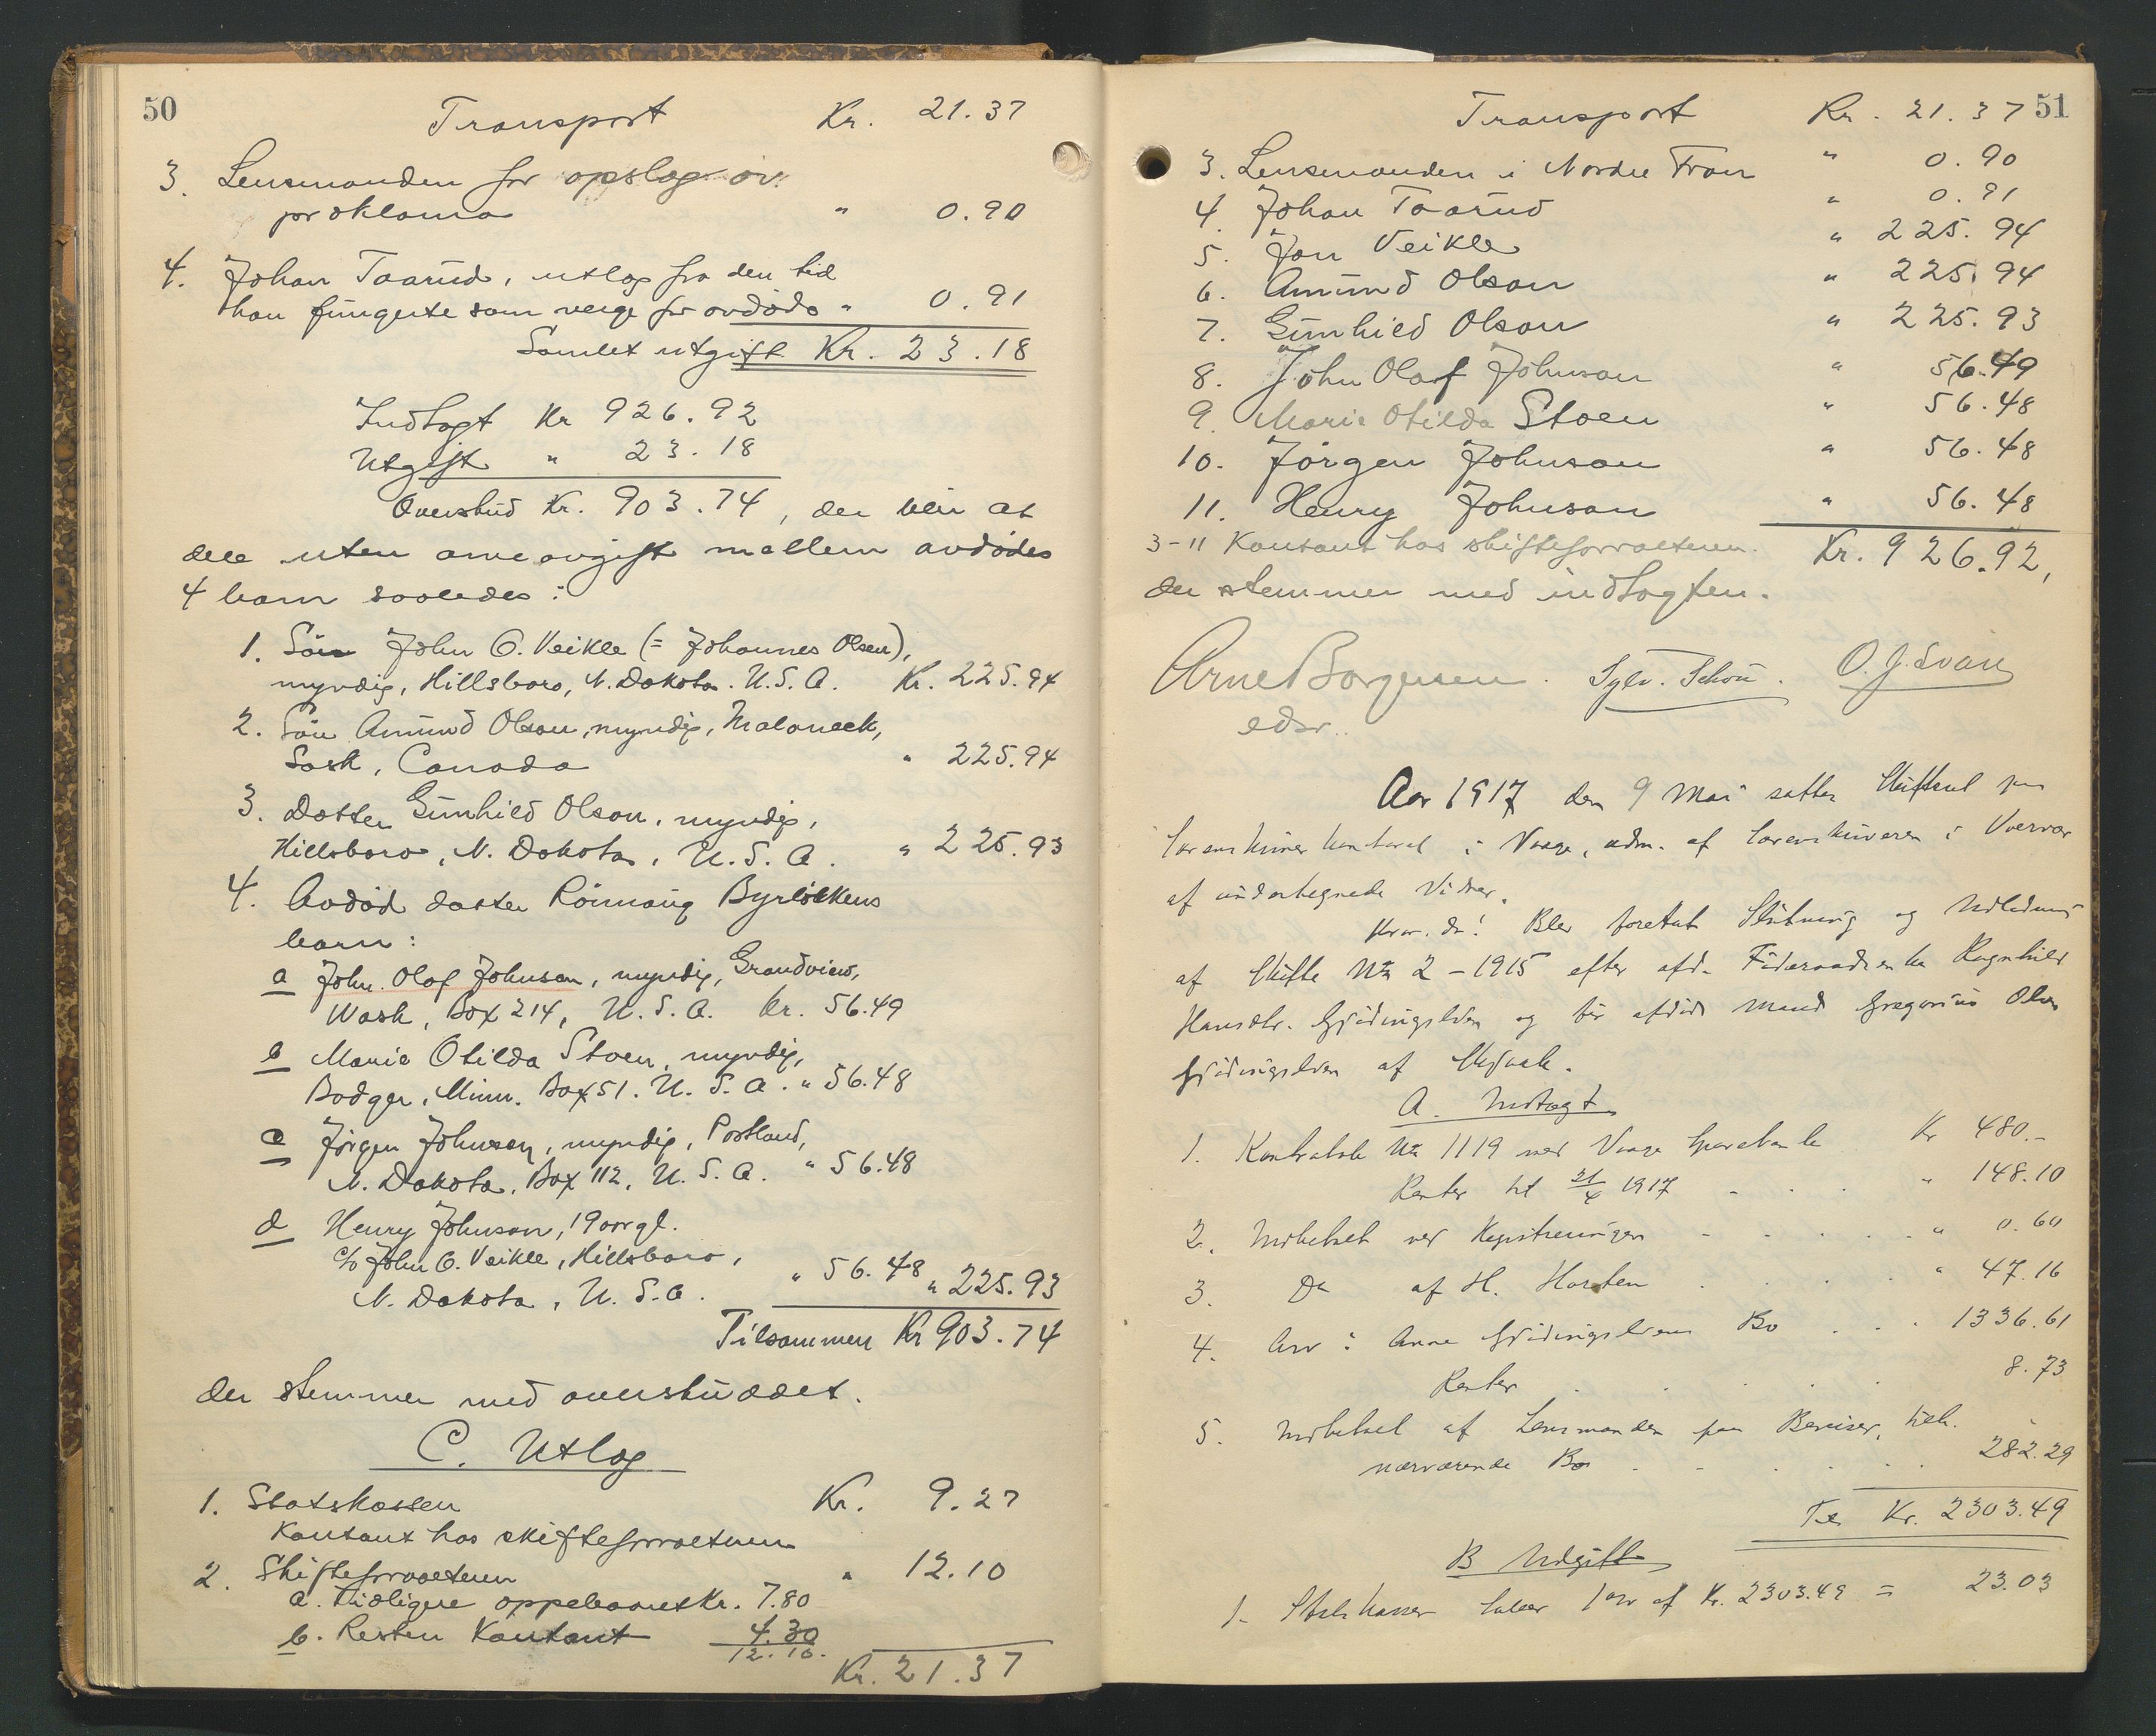 50
Transport Kr. 21.37
3. Lensmanden for opslag av
proklama " 0.90
4. Johan Taarud, utlæg fra den tid
han fungerte som verge for avdøde " 0.91
Samlet utgift Kr. 23.18
Indtægt Kr 926.92
Utgift " 23.18
Overskud Kr. 903.74, der blir at
dele uten arveavgift mellem avdødes
4 barn saaledes:
1. Søn John O. Veikle (= Johannes Olsen),
myndig, Hillsboro, N. Dakota. U.S.A. Kr. 225.94
2. Søn Amund Olson, myndig, Maloneck,
Sask, Canada " 225.94
3. Datter Gunhild Olson, myndig,
Hillsboro, N. Dakota, U.S.A. " 225.93
4. Avdød datter Rønnaug Byrløkkens
barn:
a John Olaf Johnson, myndig, Grandview,
Wash, Box 214, U.S.A. Kr. 56.49
b Marie Otilda Stoen, myndig,
Badger, Minn. Box 51. U.S.A. " 56.48
c Jørgen Johnson, myndig, Portland,
N. Dakota, Box 112, U.S.A. " 56.48
d Henry Johnson, 19 aar gl.
c/o John O. Veikle, Hillsboro,
N. Dakota, U.S.A. " 56.48 " 225.93
Tilsammen Kr 903.74
der stemmer med overskuddet.
C. Utlæg
1. Statskassen Kr. 9.27
Kontant hos skifteforvalteren
2. Skifteforvalteren " 12.10
a. Tidligere oppebaaret Kr. 7.80
b. Resten Kontant 4.30
12.10.
Kr. 21.37
51
Transport Kr. 21.37
3. Lensmanden i Nordre Fron " 0.90
4. Johan Taarud " 0.91
5. Jon Veikle " 225.94
6. Amund Olson " 225.94
7. Gunhild Olson " 225.93
8. John Olaf Johnson " 56.49
9. Marie Otilda Stoen " 56.48
10. Jørgen Johnson " 56.48
11. Henry Johnson " 56.48
3-11 Kontant hos skifteforvalteren. Kr. 926.92,
der stemmer med indtægten.
Arne Borgersen. Sylv. Schou. O. J. Svare
edsv.
Aar 1917 den 9 Mai sattes Skifteret paa
Sorenskriverkontoret i Vaage, adm. af Sorenskriveren i Overvær
af undertegnede Vidner.
Hvorda! Blev foretat Slutning og Udlodning
af Skifte No 2 - 1915 efter afd. Føderaadsenke Ragnhild
Hansdtr. Gjødingslien og før afdøde Mand Gregorius Olsen
Gjødingslien af Skjaak.
A. Indtægt
1. Kontrabok No 1119 med Vaage Sparebank Kr 480.-
Renter til 21/4 1917 " 148.10
2. Indbetalt ved Registreringen " 0.60
3. Do af H. Harsten " 47.16
4. Arv i Anne Gjødingsliens Bo 1336.61
Renter 8.73
5. Indbetalt af Lensmanden paa Beviser, tilh.
nærværende Bo 282.29
Til Kr. 2303.49
B Udgift
1. Statskassen af Kr. 2303.49 = 23.03